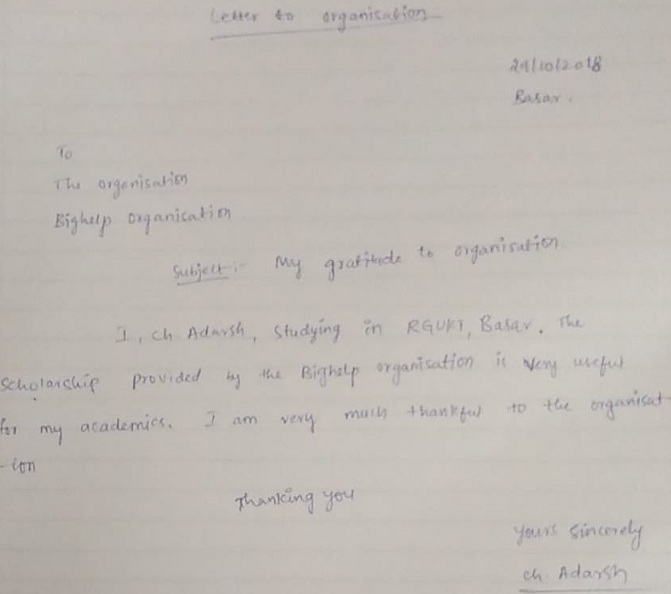 Letter to organisation
29/10/2018
Basar.
To
The organisation
Bighelp organisation
Subject:- My gratitude to organisation
I, ch Adarsh, Studying in RGUKT, Basar. The
Scholarship provided by the Bighelp organisation is very useful
for my academics. I am very much thankful to the organisat-
-ion
Thanking you
yours sincerely
ch. Adarsh